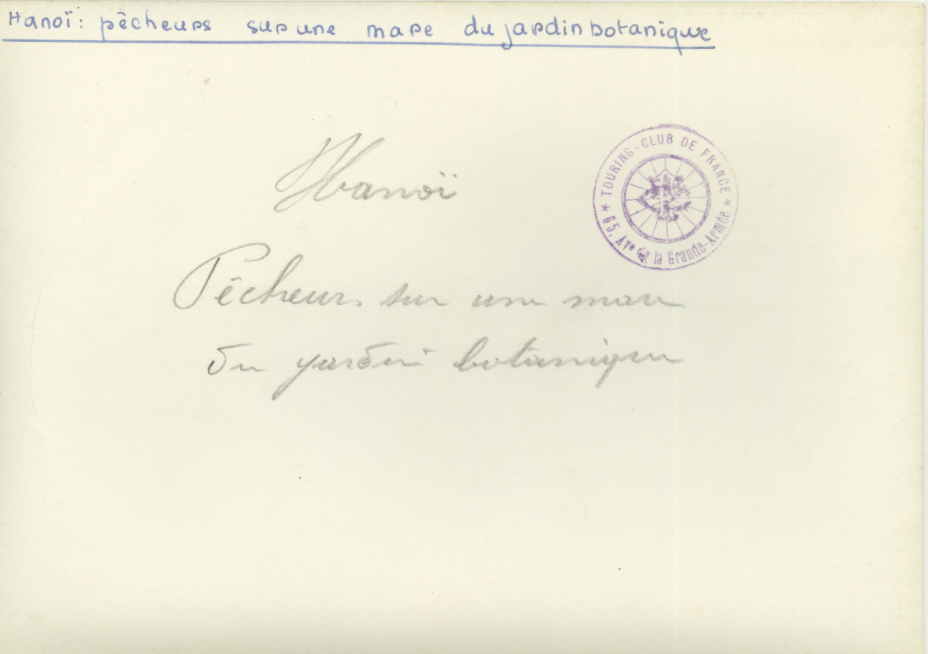 Hanoï: pêcheurs sur une mare du jardin botanique
Hanoï
TOURING-CLUB DE FRANCE
★ 65, Ave de la Grande-Armée ★
Pêcheurs sur une mare
du jardin botanique